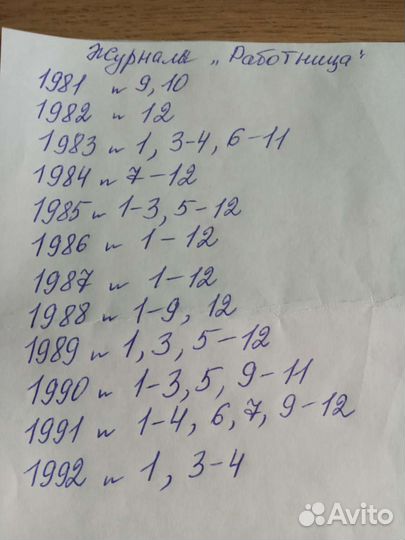 Журналы „Работница"
1981 н 9, 10
1982 н 12
1983 н 1, 3-4, 6-11
1984 н 7-12
1985 н 1-3, 5-12
1986 н 1-12
1987 н 1-12
1988 н 1-9, 12
1989 н 1, 3, 5-12
1990 н 1-3, 5, 9-11
1991 н 1-4, 6, 7, 9-12
1992 н 1, 3-4
Avito